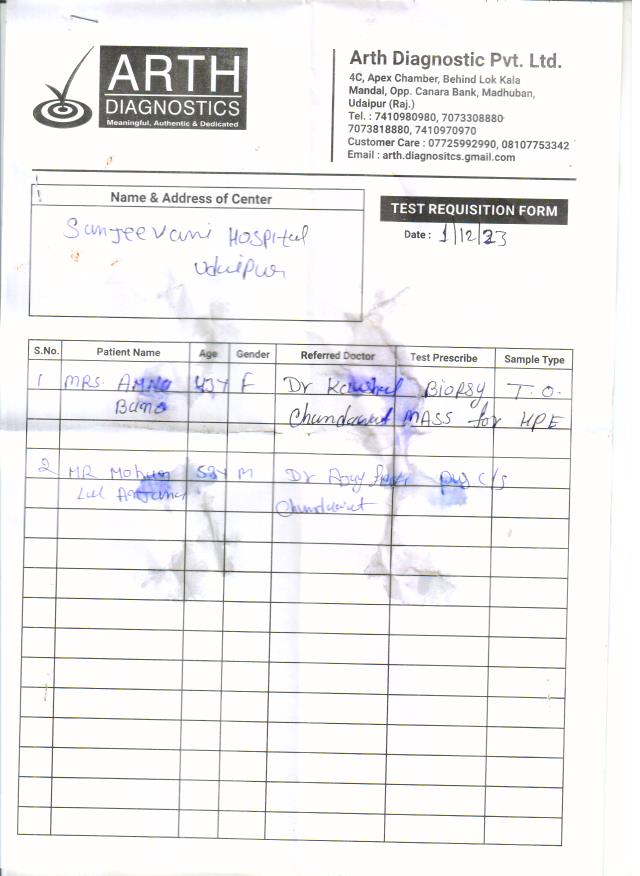 ARTH
DIAGNOSTICS
Meaningful, Authentic & Dedicated
Arth Diagnostic Pvt. Ltd.
4C, Apex Chamber, Behind Lok Kala
Mandal, Opp. Canara Bank, Madhuban,
Udaipur (Raj.)
Tel. : 7410980980, 7073308880
7073818880, 7410970970
Customer Care : 07725992990, 08107753342
Email : arth.diagnositcs.gmail.com
Name & Address of Center
Sanjeevani Hospital
Udaipur
TEST REQUISITION FORM
Date : 1/12/23
S.No. Patient Name Age Gender Referred Doctor Test Prescribe Sample Type
1 MRS. 43Y F Dr Biopsy T.O.
Bano Chundawat MASS for HPE
2 MR Mohan M Dr pus C/S
Lal Chundawat